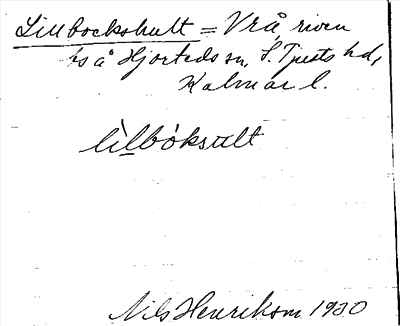 Lillbockshult = Vrå, riven
bs å Hjorteds sn, S. Tjusts hd,
Kalmar l.
lìlbòksult
Nils Henrikson 1930